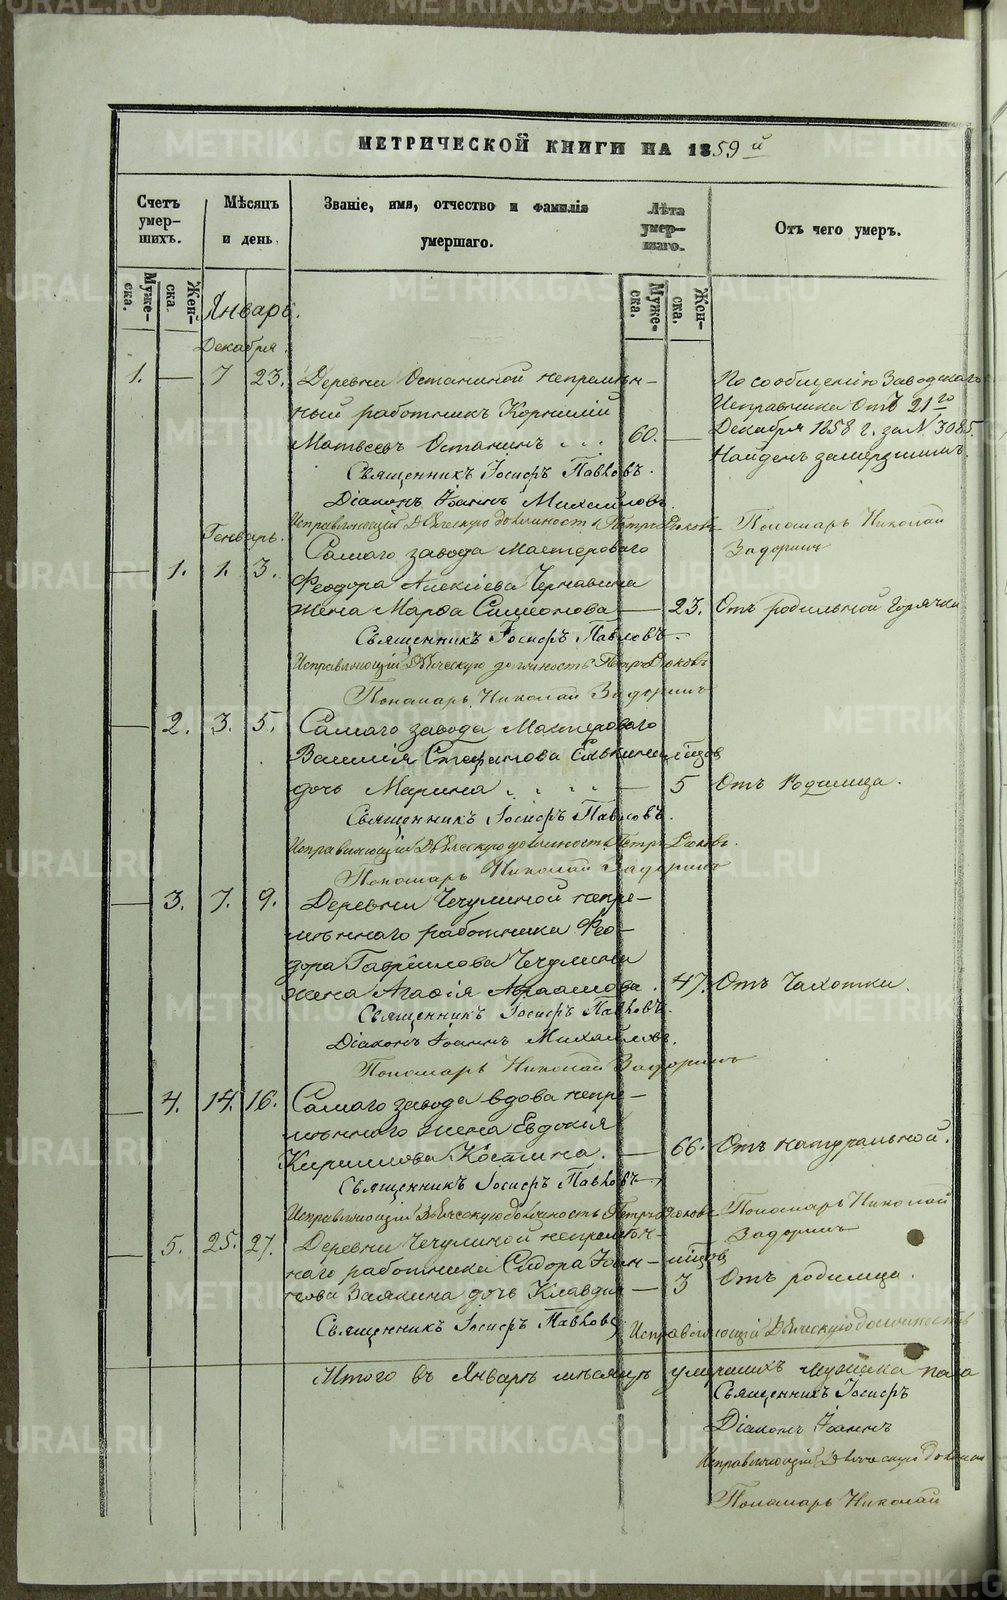 МЕТРИЧЕСКОЙ КНИГИ НА 1859й
Счетъ умер-шихъ.
Мѣсяцъ и день.
Званіе, имя, отчество и фамилія умершаго.
Лѣта умер-шаго.
Отъ чего умеръ.
Муже-ска.
Жен-ска.
Муже-ска.
Жен-ска.
Январь.
Декабря.
1. — 7 23. Деревни Останиной непремѣн-
ный работникъ Корнилій
Матвеевъ Останинъ . . . 60. —
По сообщенію Заводскаго
Исправника отъ 21го
Декабря 1858 г. за N 3085.
Найденъ замерзшимъ.
Священникъ Іосифъ Павловъ.
Діаконъ Іоаннъ Михайловъ.
Исправляющій Дьяческую должность Петръ
Пономарь Николай
Задоринъ
Генварь.
— 1. 1. 3. Самаго завода Мастероваго
Феодора Алексіева
жена Марѳа Симеонова — 23. Отъ родильной горячки
Священникъ Іосифъ Павловъ.
Исправляющій Дьяческую должность Петръ
Пономарь Николай Задоринъ
— 2. 3. 5. Самаго завода Мастероваго
Василія Стефанова
дочь Марина . . . . — 5 Отъ Родимца.
Священникъ Іосифъ Павловъ.
Исправляющій Дьяческую должность Петръ
Пономарь Николай Задоринъ
— 3. 7. 9. Деревни Чечулиной непре-
мѣннаго работника Фео-
дора Гавріилова Чечулина
жена Агафія Авраамова. 47. Отъ Чахотки.
Священникъ Іосифъ Павловъ.
Діаконъ Іоаннъ Михайловъ.
Пономарь Николай Задоринъ
— 4. 14. 16. Самаго завода вдова непре-
мѣннаго жена Евдокія
Кирилова Костина. — 66. Отъ натуральной.
Священникъ Іосифъ Павловъ.
Исправляющій Дьяческую должность Петръ
Пономарь Николай
Задоринъ
— 5. 25. 27. Деревни Чечулиной непремѣн-
наго работника Сидора Іоан-
нова дочь Клавдія — 3 Отъ родимца.
Священникъ Іосифъ Павловъ
Исправляющій Дьяческую должность
Итого въ Январѣ мѣсяцѣ умершихъ мужеска пола
Священникъ Іосифъ
Діаконъ Іоаннъ
Исправляющій Дьяческую
Пономарь Николай
METRIKI.GASO-URAL.RU